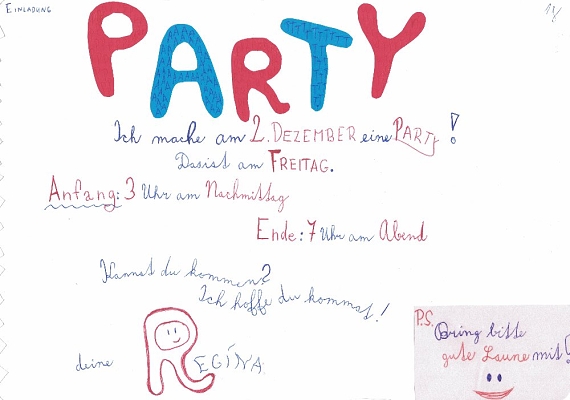 EINLADUNG
PARTY
Ich mache am 2. DEZEMBER eine PARTY!
Das ist am FREITAG.
Anfang: 3 Uhr am Nachmittag
Ende: 7 Uhr am Abend
Kannst du kommen?
Ich hoffe du kommst!
deine REGINA
P.S.
Bring bitte
gute Laune mit!